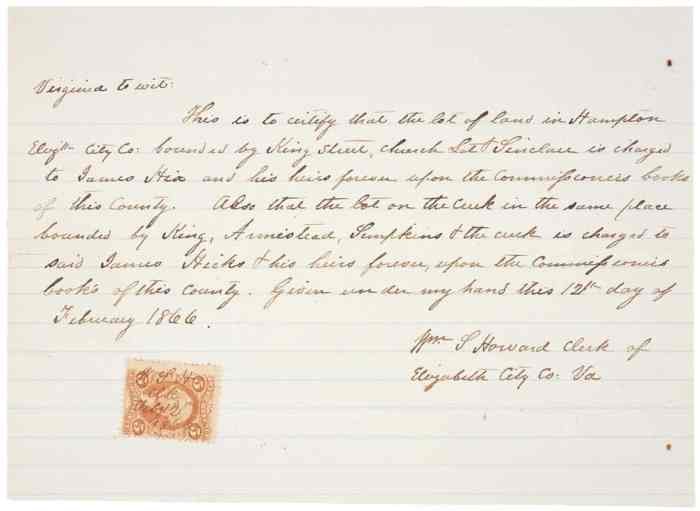 Virginia to wit:
This is to certify that the lot of land in Hampton
Elizth City Co: bounded by King Street, church Lot & Sinclair is charged
to James Hix and his heirs forever upon the Commissioners books
of this County. Also that the lot on the creek in the same place
bounded by King, Armistead, Simpkins & the creek is charged to
said James Hicks & his heirs forever, upon the Commissioners
books of this county. Given under my hand this 12th day of
February 1866.
Wm S Howard Clerk of
Elizabeth City Co. Va
5 5